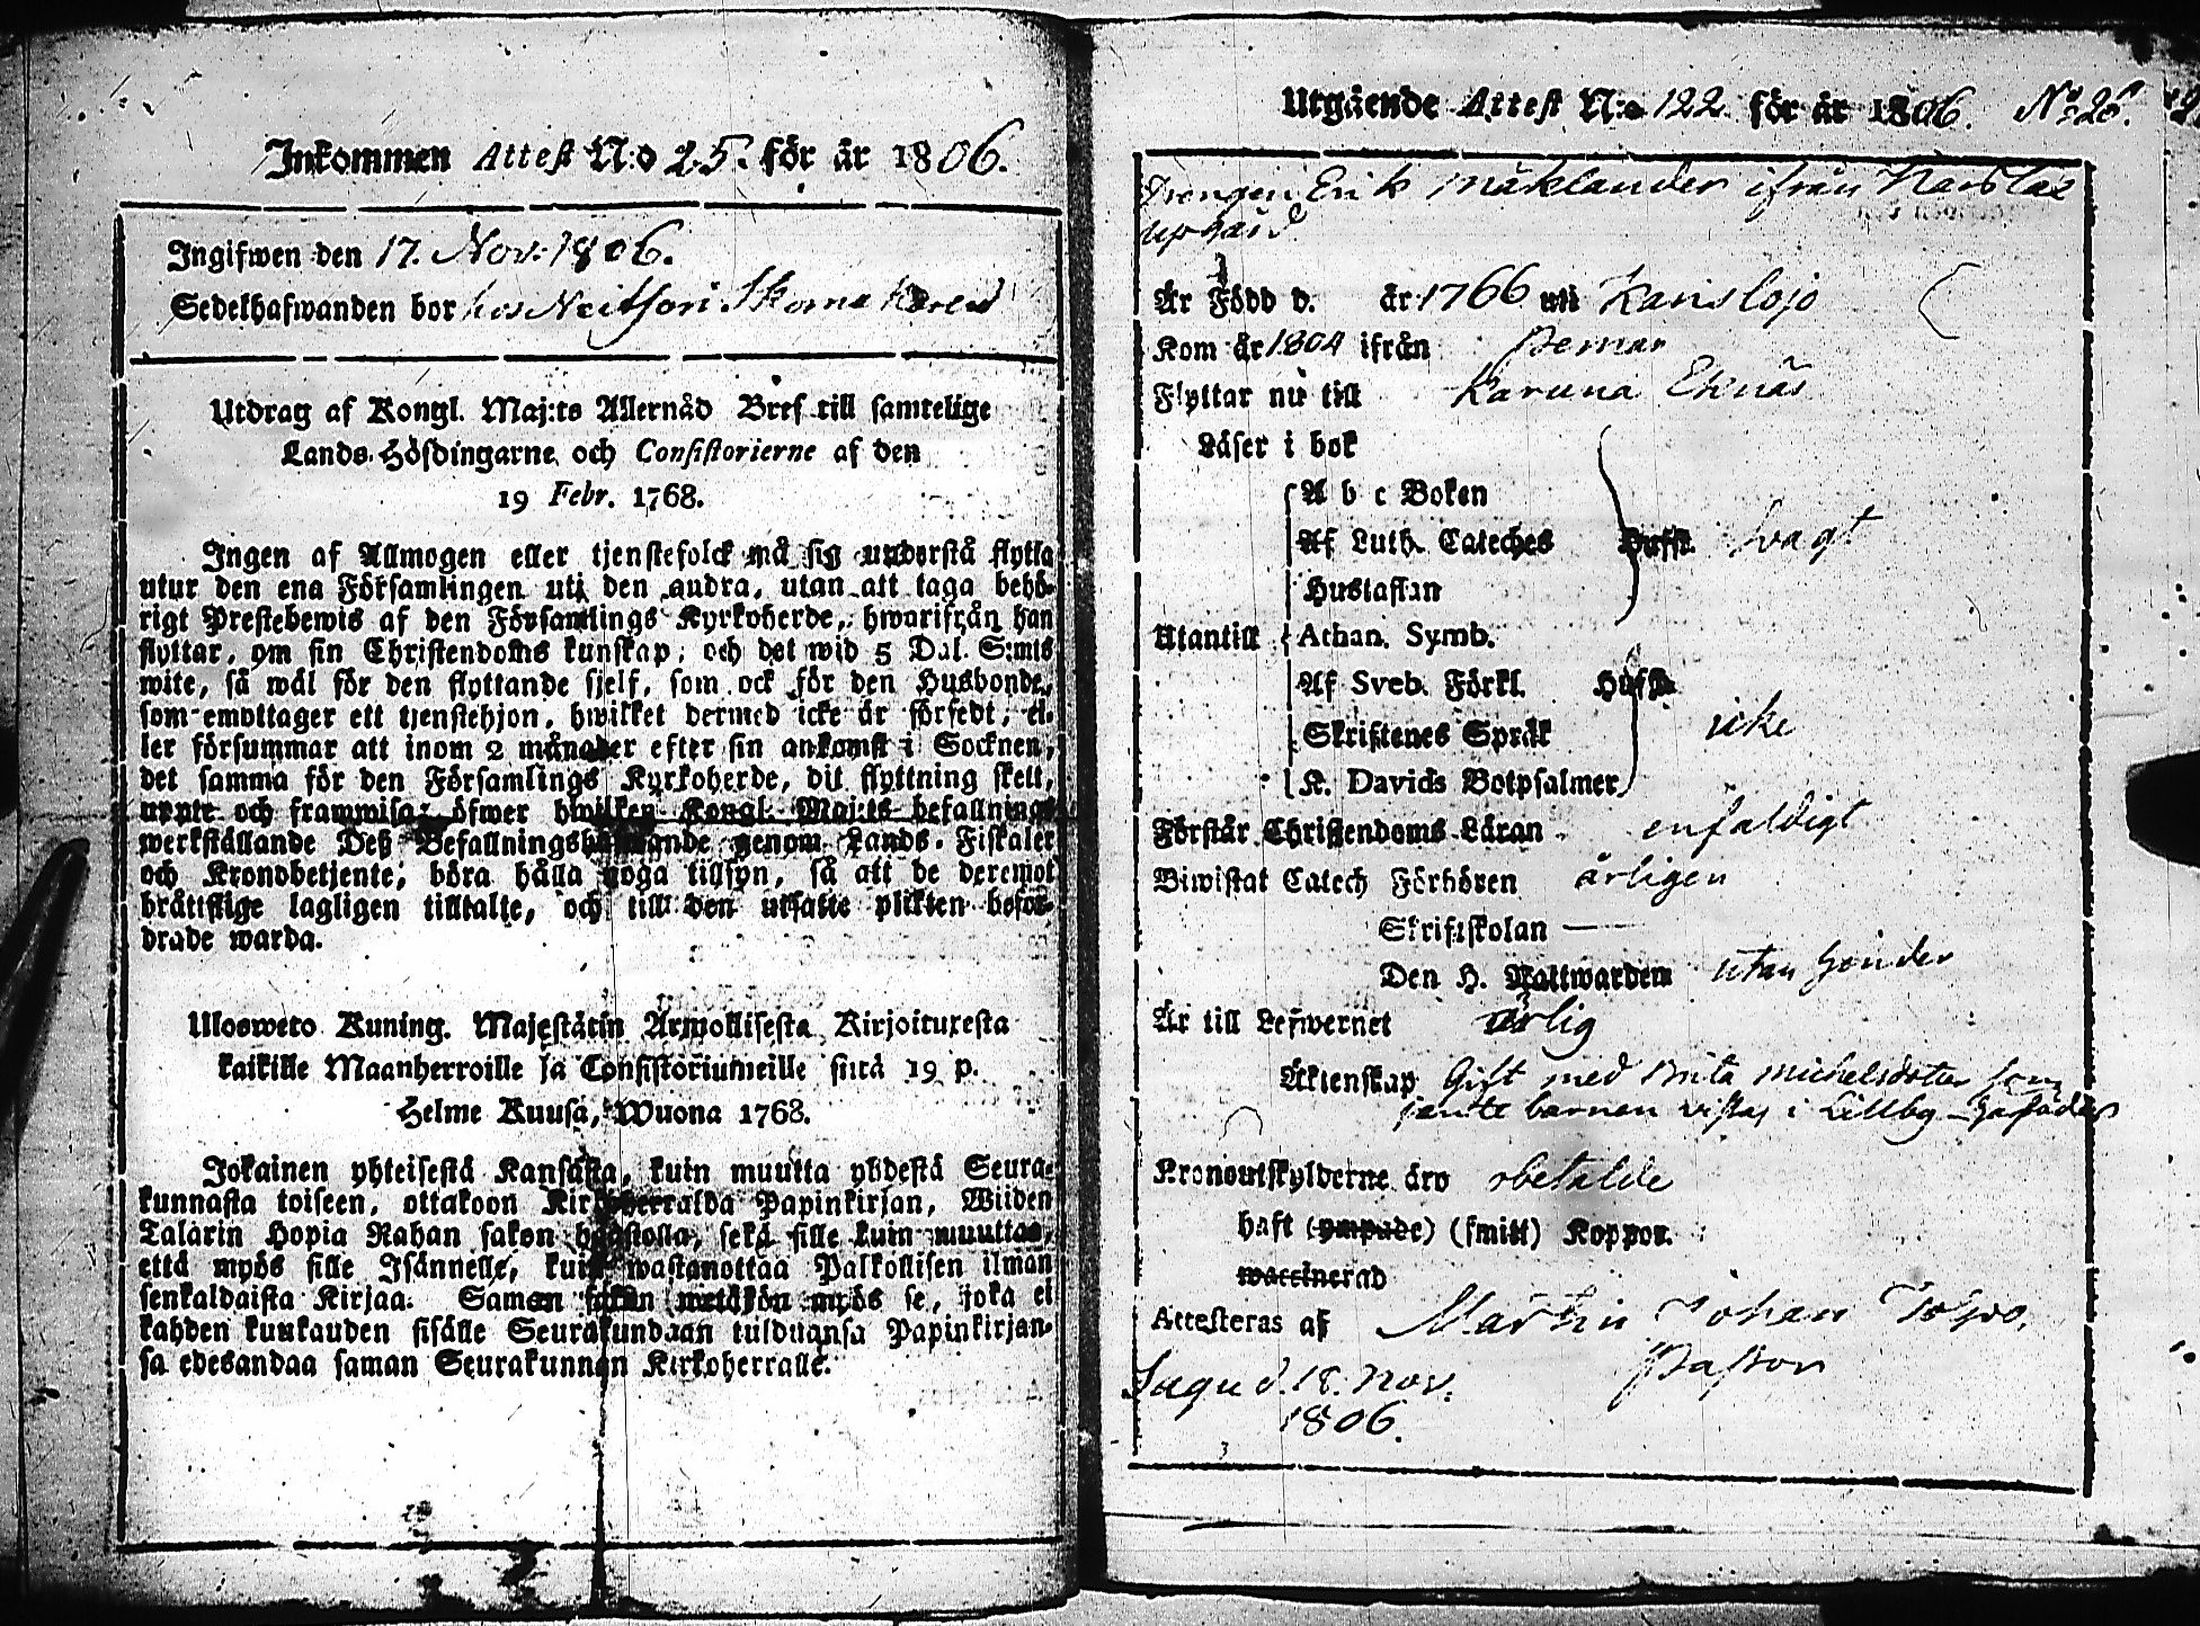 Inkommen Attest N:o 25. för år 1806.
Ingifwen den 17. Nov: 1806.
Sedelhafwanden bor hos Neitsori Skomakaren
Utdrag af Kongl. Maj:ts Allernåd Bref till samtelige
Lands-Höfdingarne och Consistorierne af den
19 Febr. 1768.
Ingen af Allmogen eller tjenstefolck må sig understå flytta
utur den ena Församlingen uti den andra, utan att taga behö-
rigt Prestebewis af den Församlings Kyrkoherde, hwarifrån han
flyttar, om sin Christendoms kunskap, och det wid 5 Dal. S:mts
wite, så wäl för den flyttande sjelf, som ock för den Husbonde,
som emottager ett tjenstehjon, hwilket dermed icke är försedt, el-
ler försummar att inom 2 månader efter sin ankomst i Socknen,
det samma för den Församlings Kyrkoherde, dit flyttning skett,
uppte och frammisa; öfwer hwilken Kongl. Maj:ts befallnings
werkställande Deß Befallningshafwande genom Lands-Fiskaler
och Kronobetjente, böra hålla noga tillsyn, så att de deremot
bråttslige lagligen tilltalte, och till den utsatte plikten befor-
drade warda.
Ulosweto Kuning. Majestätin Armollisesta Kirjoituxesta
kaikille Maanherroille ja Consistoriumeille siitä 19 p.
Helme Kuusa, Wuona 1768.
Jokainen yhteisestä Kansasta, kuin muutta yhdestä Seura-
kunnasta toiseen, ottakoon Kirkoherralda Papinkirjan, Wiiden
Talarin Hopia Rahan sakon haastolla, sekä sille kuin muuttaa,
että myös sille Isännelle, kuin wastanottaa Palkollisen ilman
senkaldaista Kirjaa. Saman sakon wetäkön myös se, joka ei
kahden kuukauden sisälle Seurakundaan tulduansa Papinkirjan-
sa edesandaa saman Seurakunnan Kirkoherralle.
Utgående Attest N:o 122 för år 1806. No 26.
Drengen Erik Mäklander ifrån
upgård
Är Född d. år 1766 uti Karislojo
Kom år 1804 ifrån Pernar
Flyttar nu till Karuna Eknäs
Läser i bok
A b c Boken
Af Luth. Cateches Hufst. Svagt
Hustaflan
Utantill Athan. Symb.
Af Sveb. Förkl. Hufst.
Skriftenes Språk icke
K. Davids Botpsalmer
Förstår Christendoms Läran enfaldigt
Biwistat Catech Förhören årligen
Skriftskolan —
Den H. Nattwarden utan hinder
Är till Lefwernet ärlig
Äktenskap Gift med Brita Michelsdotter som
jemte barnen vistas i Lillby
Kronoutskylderne äro obetalde
haft (ympade) (smitt) Koppor.
waccinerad
Attesteras af Martin Johan
Pastor
Sagu d. 18. Nov.
1806.